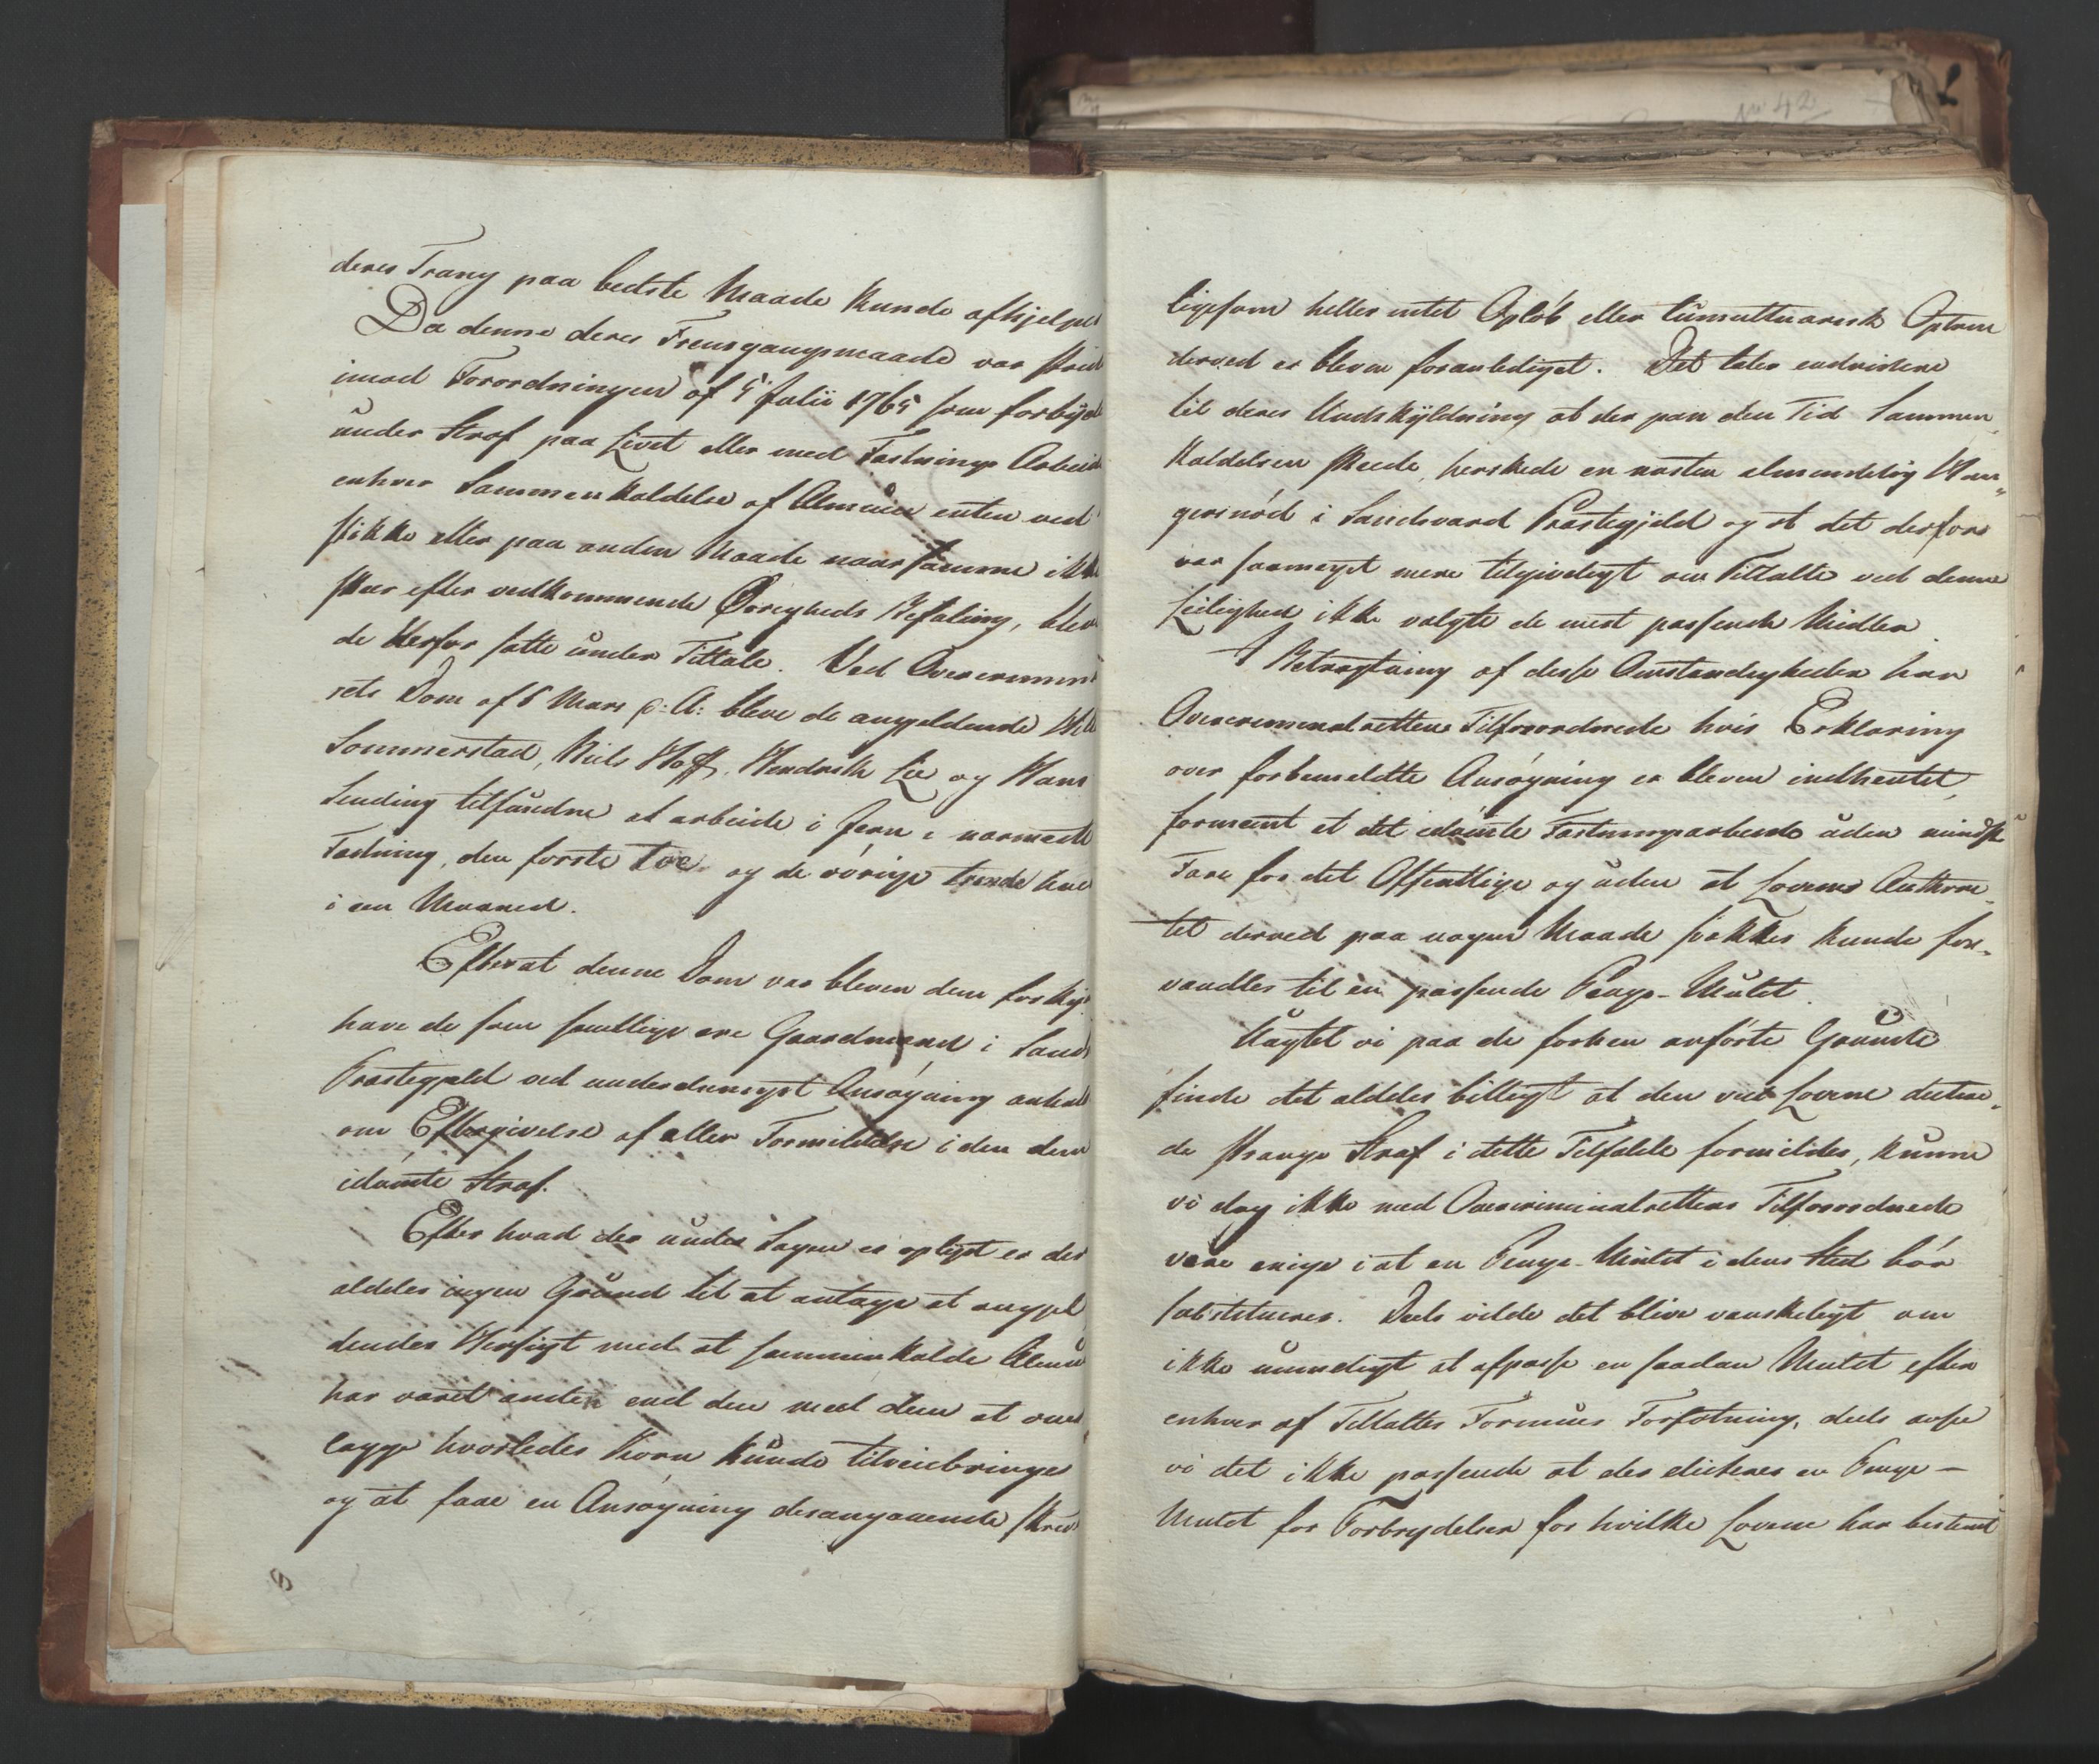 No 42
deres Trang paa bedste Maade kunde afhjelpes
Da denne deres Fremgangsmaade var strid
imod Forordningen af 5 Julii 1765 som forbyd
under Straf paa Livet eller med Fæstnings Arbeid
enhver Sammenkaldelse af Almuen enten ved
stikke eller paa anden Maade naar samme ikke
skeer efter vedkommende Øvrigheds Befaling, blev
de derfor satte under Tiltale. Ved Overcrimi
rets Dom af 6 Mars d: A: bleve de angjeldende
Sommerstad, Niels Hoff, Hendrik Lie og Hans
Sending tilfundne at arbeide i Jern i nærmeste
Fæstning, den første toe og de øvrige trende hver
i een Maaned.
Efterat denne Dom var bleven dem forkyn
have de som samtlige ere Gaardmænd i Sand
Præstegjeld ved underdanigst Ansøgning anhold
om Eftergivelse af eller Formildelse i den dem
idømte Straf.
Efter hvad der under Sagen er oplyst er der
aldeles ingen Grund til at antage at angjel
dendes Hensigt med at sammenkalde Almu
har været anden end den med dem at over
lægge hvorledes Korn kunde tilveiebringes
og at faae en Ansøgning desangaaende skrev
ligesom heller intet Opløb eller tumultuarisk Optrin
derved er bleven foranlediget. Det taler endvidere
til deres Undskyldning at der paa den Tid Sammen-
kaldelsen skeede, herskede en næsten almindelig Hun-
gersnød i Sandsværd Præstegjeld og at det derfor
var saameget mere tilgiveligt om Tiltalte ved denne
Leilighed ikke valgte de mest passende Midler.
I Betragtning af disse Omstændigheder har
Overcriminalrettens Tilforordnede hvis Erklæring
over forbemeldte Ansøgning er bleven indhentet,
formeent at det idømte Fæstningsarbeide uden mindste
Fare for det Offentlige og uden at Lovens Authori-
tet derved paa nogen Maade svækkes kunde for-
vandles til en passende Penge-Mulct.
Uagtet vi paa de forhen anførte Grunde
finde det aldeles billigt at den ved Lovene dictere-
de strænge Straf i dette Tilfælde formildes, kunne
vi dog ikke med Overcriminalrettens Tilforordnede
være enige i at en Penge-Mulct i dens Sted bør
substitueres. Deels vilde det blive vanskeligt om
ikke umueligt at afpasse en saadan Mulct efter
enhver af Tiltaltes Formues Forfatning, deels ansee
vi det ikke passende at der dicteres en Penge-
Mulct for Forbrydelser for hvilke Lovene har bestemt